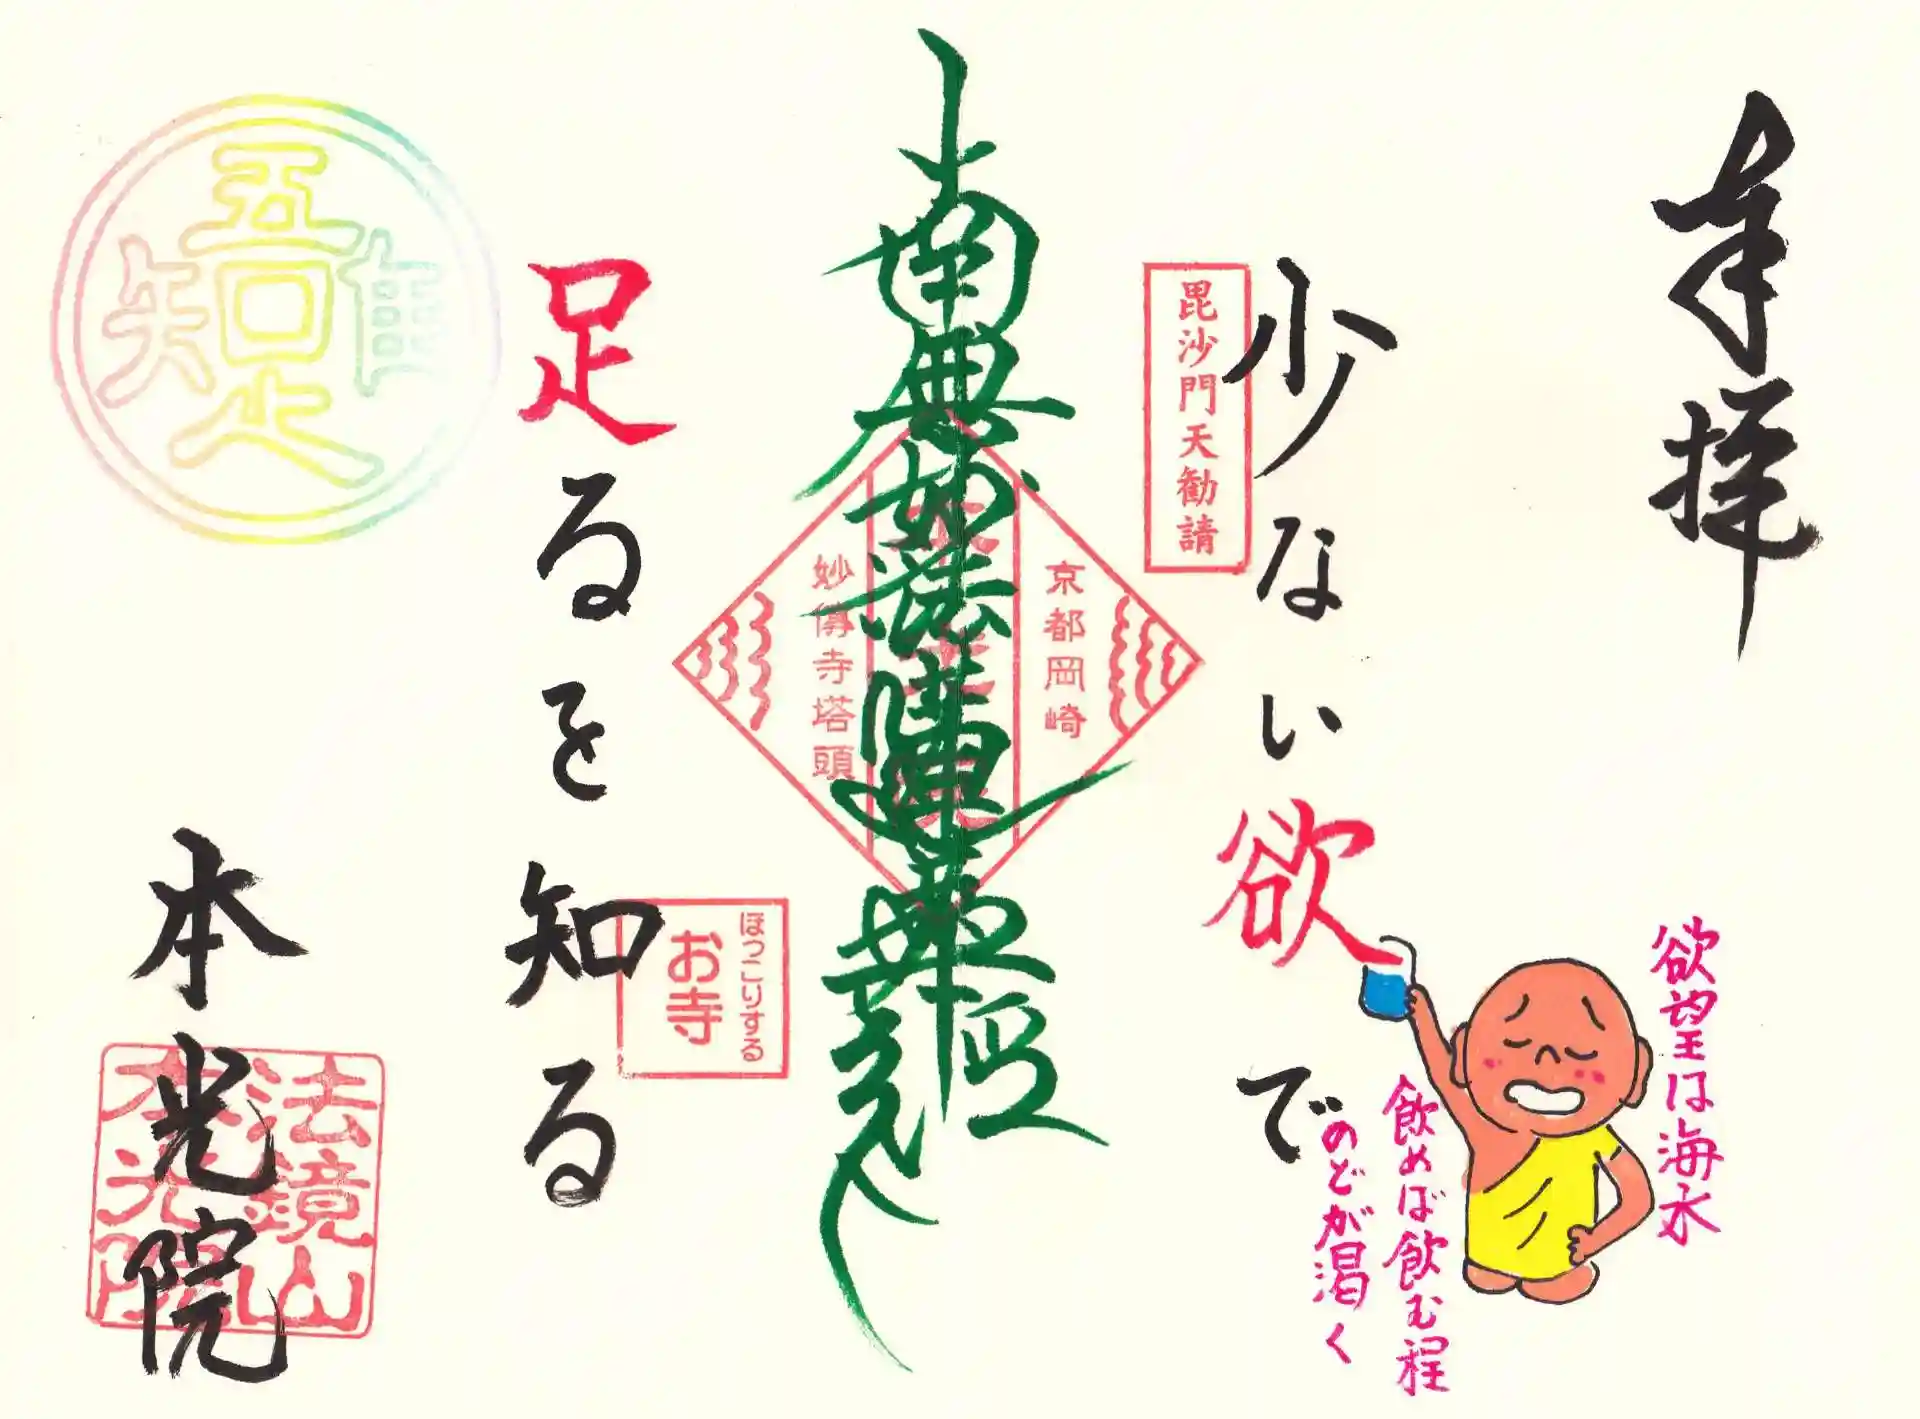 奉拝
少ない欲で
欲望は海水
飲めば飲む程
のどが渇く
毘沙門天勧請
京都岡崎
南無妙法蓮華経
妙傳寺塔頭
ほっこりする
お寺
足るを知る
吾唯足知
本光院
法鏡山
本光院